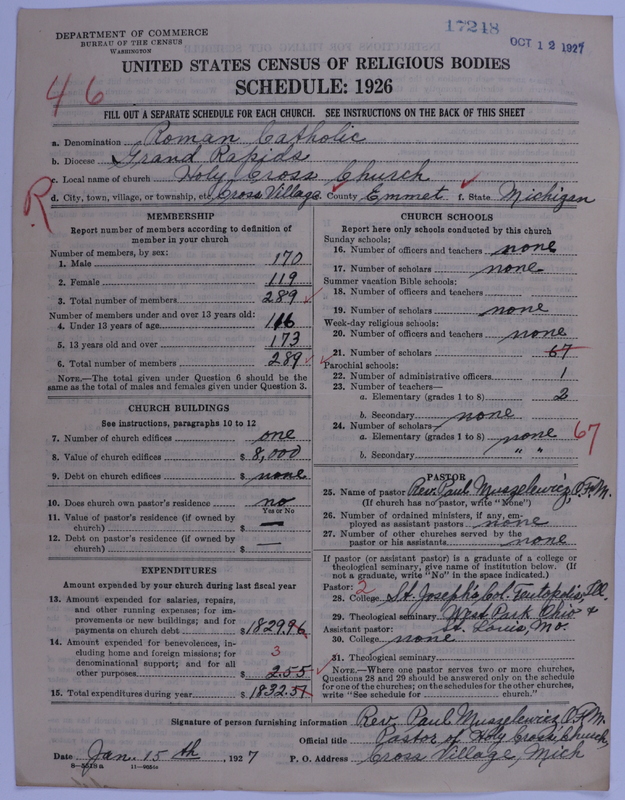 DEPARTMENT OF COMMERCE
BUREAU OF THE CENSUS
WASHINGTON
17248
OCT 12 1927
UNITED STATES CENSUS OF RELIGIOUS BODIES
SCHEDULE: 1926
46
FILL OUT A SEPARATE SCHEDULE FOR EACH CHURCH. SEE INSTRUCTIONS ON THE BACK OF THIS SHEET
a. Denomination Roman Catholic
b. Diocese Grand Rapids
c. Local name of church Holy Cross Church
R
d. City, town, village, or township, etc. Cross Village County Emmet f. State Michigan
MEMBERSHIP
Report number of members according to definition of
member in your church
Number of members, by sex:
1. Male 170
2. Female 119
3. Total number of members 289
Number of members under and over 13 years old:
4. Under 13 years of age 116
5. 13 years old and over 173
6. Total number of members 289
NOTE.—The total given under Question 6 should be the
same as the total of males and females given under Question 3.
CHURCH BUILDINGS
See instructions, paragraphs 10 to 12
7. Number of church edifices one
8. Value of church edifices $ 8,000
9. Debt on church edifices $ none
10. Does church own pastor's residence no
Yes or No
11. Value of pastor's residence (if owned by
church) $ —
12. Debt on pastor's residence (if owned by
church) $ —
EXPENDITURES
Amount expended by your church during last fiscal year
13. Amount expended for salaries, repairs,
and other running expenses; for im-
provements or new buildings; and for
payments on church debt $ 1829.96
14. Amount expended for benevolences, in-
cluding home and foreign missions; for
denominational support; and for all
other purposes $ 2.55
3
15. Total expenditures during year $ 1832.51
CHURCH SCHOOLS
Report here only schools conducted by this church
Sunday schools:
16. Number of officers and teachers none
17. Number of scholars none
Summer vacation Bible schools:
18. Number of officers and teachers
19. Number of scholars none
Week-day religious schools:
20. Number of officers and teachers none
21. Number of scholars 67
Parochial schools:
22. Number of administrative officers 1
23. Number of teachers—
a. Elementary (grades 1 to 8) 2
b. Secondary none
24. Number of scholars
a. Elementary (grades 1 to 8) none 67
b. Secondary " "
PASTOR
25. Name of pastor Rev. Paul Muszelewicz, O.F.M.
(If church has no pastor, write "None")
26. Number of ordained ministers, if any, em-
ployed as assistant pastors none
27. Number of other churches served by the
pastor or his assistants none
If pastor (or assistant pastor) is a graduate of a college or
theological seminary, give name of institution below. (If
not a graduate, write "No" in the space indicated.)
Pastor: 2
28. College St. Josephs Col. Teutopolis, Ill.
29. Theological seminary West Park Ohio &
Assistant pastor: St. Louis, Mo.
30. College none
31. Theological seminary
NOTE.—Where one pastor serves two or more churches,
Questions 28 and 29 should be answered only on the schedule
for one of the churches; on the schedules for the other churches,
write "See schedule for church."
Signature of person furnishing information Rev. Paul Muszelewicz O.F.M.
Official title Pastor of Holy Cross Church,
Date Jan. 15th, 1927 P. O. Address Cross Village, Mich
8-5518a 11-9656a